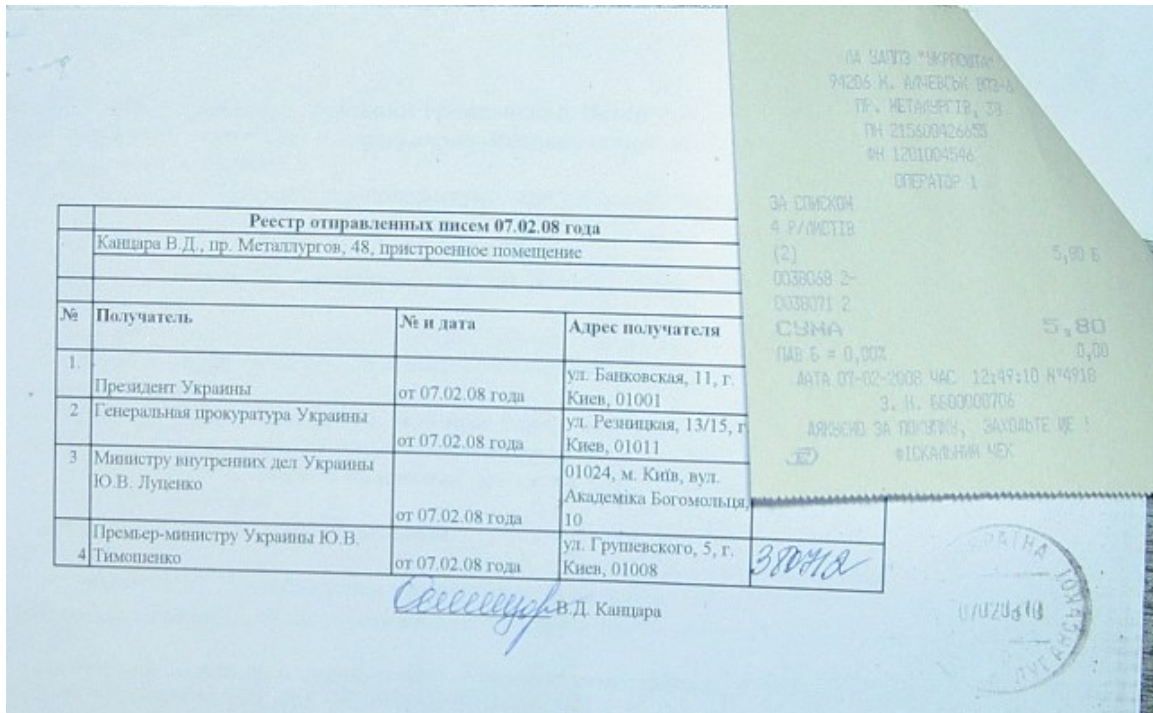 Реестр отправленных писем 07.02.08 года
Канцара В.Д., пр. Металлургов, 48, пристроенное помещение
№ Получатель № и дата Адрес получателя
1. Президент Украины от 07.02.08 года ул. Банковская, 11, г.
Киев, 01001
2 Генеральная прокуратура Украины от 07.02.08 года ул. Резницкая, 13/15, г
Киев, 01011
3 Министру внутренних дел Украины
Ю.В. Луценко от 07.02.08 года 01024, м. Київ, вул.
Академіка Богомольця,
10
4 Премьер-министру Украины Ю.В.
Тимошенко от 07.02.08 года ул. Грушевского, 5, г.
Киев, 01008
В.Д. Канцара
"УКРПОШТА"
94206 М. АЛЧЕВСЬК ВПЗ-6
ПР. МЕТАЛУРГІВ, 38
ПН 215600426655
ФН 1201004546
ОПЕРАТОР 1
ЗА СПИСКОМ
4 Р/ЛИСТІВ
(2) 5,80 Б
0038068 2-
0038071 2
СУМА 5,80
ПДВ Б = 0,00% 0,00
ДАТА 07-02-2008 ЧАС 12:49:10 №4918
З. Н. ББ00000706
ДЯКУЄМО ЗА ПОКУПКУ, ЗАХОДЬТЕ ЩЕ !
ФІСКАЛЬНИЙ ЧЕК